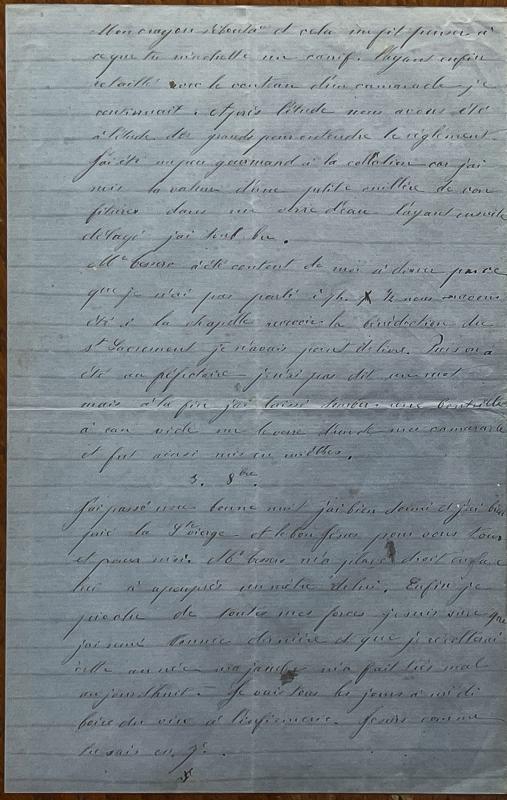 Mon crayon s'écouta et cela me fit penser à
ce que tu m'achette un canif. L'ayant enfin
retaillé avec le couteau d'un camarade je
continuait. Après l'étude nous avons été
à l'étude des grands pour entendre le règlement.
J'ai été un peu gourmand à la collation car j'ai
mis la valeur d'une petite cuillère de con
fitures dans un verre d'eau l'ayant ensuite
délayé j'ai tout bu.
Mr Bessero a été content de moi à douce parce
que je n'ai pas parlé à 4h. X ½ nous avons
été à la chapelle recevoir la bénédiction du
St Sacrement je n'avais point de livre. Puis on a
été au réfectoire je n'ai pas dit un mot
mais à la fin j'ai laissé tomber une bouteille
à eau vide sur le verre d'un de mes camarade
et fut ainsi mis en miettes.
3. 8bre.
J'ai passé une bonne nuit j'ai bien dormi et j'ai bien
prié la Ste Vierge et le bon Jésus pour vous tous
et pour moi. Mr Bessero m'a placé droit en face
lui à apeuprès un mètre de lui. Enfin je
pioche de toutes mes forces je suis sûre que
j'ai semé l'année dernière et que je recolterai
cette année ma jambe m'a fait très mal
aujourdhuit. Je vais tous les jours à midi
boire du vin à l'infirmerie. Je suis comme
tu sais en 7e.